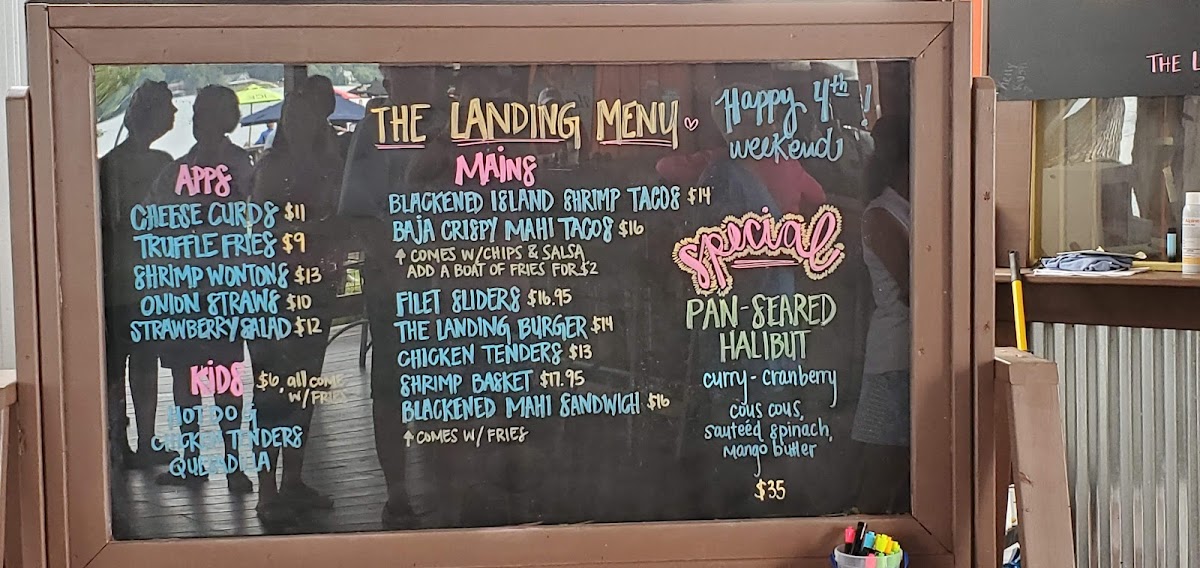 THE LANDING MENU
Happy 4th!
weekend
APPS
CHEESE CURDS $11
TRUFFLE FRIES $9
SHRIMP WONTONS $13
ONION STRAWS $10
STRAWBERRY SALAD $12
KIDS $6, all come
w/ FRIES
HOT DOG
CHICKEN TENDERS
QUESADILLA
MAINS
BLACKENED ISLAND SHRIMP TACOS $14
BAJA CRISPY MAHI TACOS $16
↑ COMES W/CHIPS & SALSA
ADD A BOAT OF FRIES FOR $2
FILET SLIDERS $16.95
THE LANDING BURGER $14
CHICKEN TENDERS $13
SHRIMP BASKET $17.95
BLACKENED MAHI SANDWICH $16
↑ COMES W/ FRIES
Special
PAN-SEARED
HALIBUT
curry-cranberry
cous cous,
sauteéd spinach,
mango butter
$35
THE L